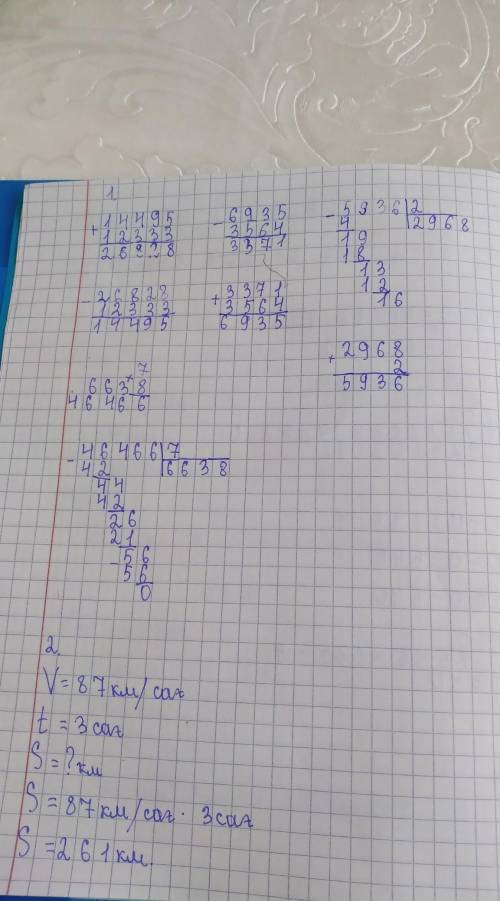 1
+14495
12333
26828
-6935
3564
3371
-5936|2
4 2968
19
18
13
12
16
-26828
12333
14495
+3371
3564
6935
+2968
2
5936
7
6638
46466
-46466|7
42 6638
44
42
26
21
-56
56
0
2.
V=87км/сағ
t=3сағ
S=?км
S=87км/сағ· 3сағ
S=261км.